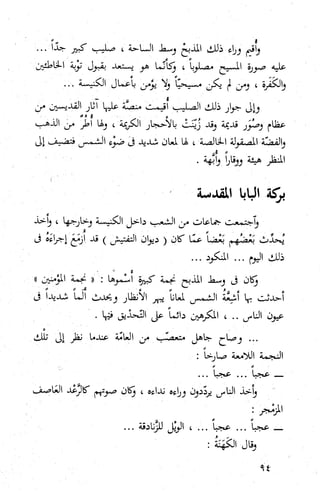 وأقيم وراء ذلك المذبح وسط الساحة ، صليب كبير جداً ...
عليه صورة المسيح مصلوباً ، وكأنما هو يستعد بقبول توبة الخاطئين
والكفرة ، ومن لم يكن مسيحياً ولا يؤمن بأعمال الكنيسة ...
وإلى جوار ذلك الصليب أقيمت منصّة عليها آثار القديسين من
عظام وصُوَر قديمة وقد زُيِّنَتْ بالأحجار الكريمة ، ولها أُطُرٌ من الذهب
والفضة المصقولة الخالصة ، لها لمعان شديد فى ضوْء الشمس فتضيف إلى
المنظر هيئة ووقاراً وأبّهة .
بركة البابا المقدسة
وآجتمعت جماعات من الشعب داخل الكنيسة وخارجها ، وأخذ
يُحدّث بَعْضُهم بَعْضاً عمّا كان ( ديوان التفتيش ) قد أزمَعَ إجراءَهُ فى
ذلك اليوم ... المنكود ...
وكان فى وسط المذبح نجمة كبيرة أَسمَوها : « نجمة المؤمنين »
أحدثت بها أشعّةُ الشمس لمعاناً يبهر الأنظار ويحدث ألماً شديداً فى
عيون الناس .. ، المكرهين دائماً على التّحديق فيها .
... وصاح جاهل متعصّب من العامّة عندما نظر إلى تلك
النجمة اللامعة صارخاً :
— عجباً ... عجباً ...
وأخذ الناس يردّدون وراءه نداءه ، وكان صوتهم كالرَّعْد العاصف
المزمجر :
— عجباً ... عجباً ... ، الويْل للزّنادقة ...
وقال الكَهَنَةُ :
٩٤